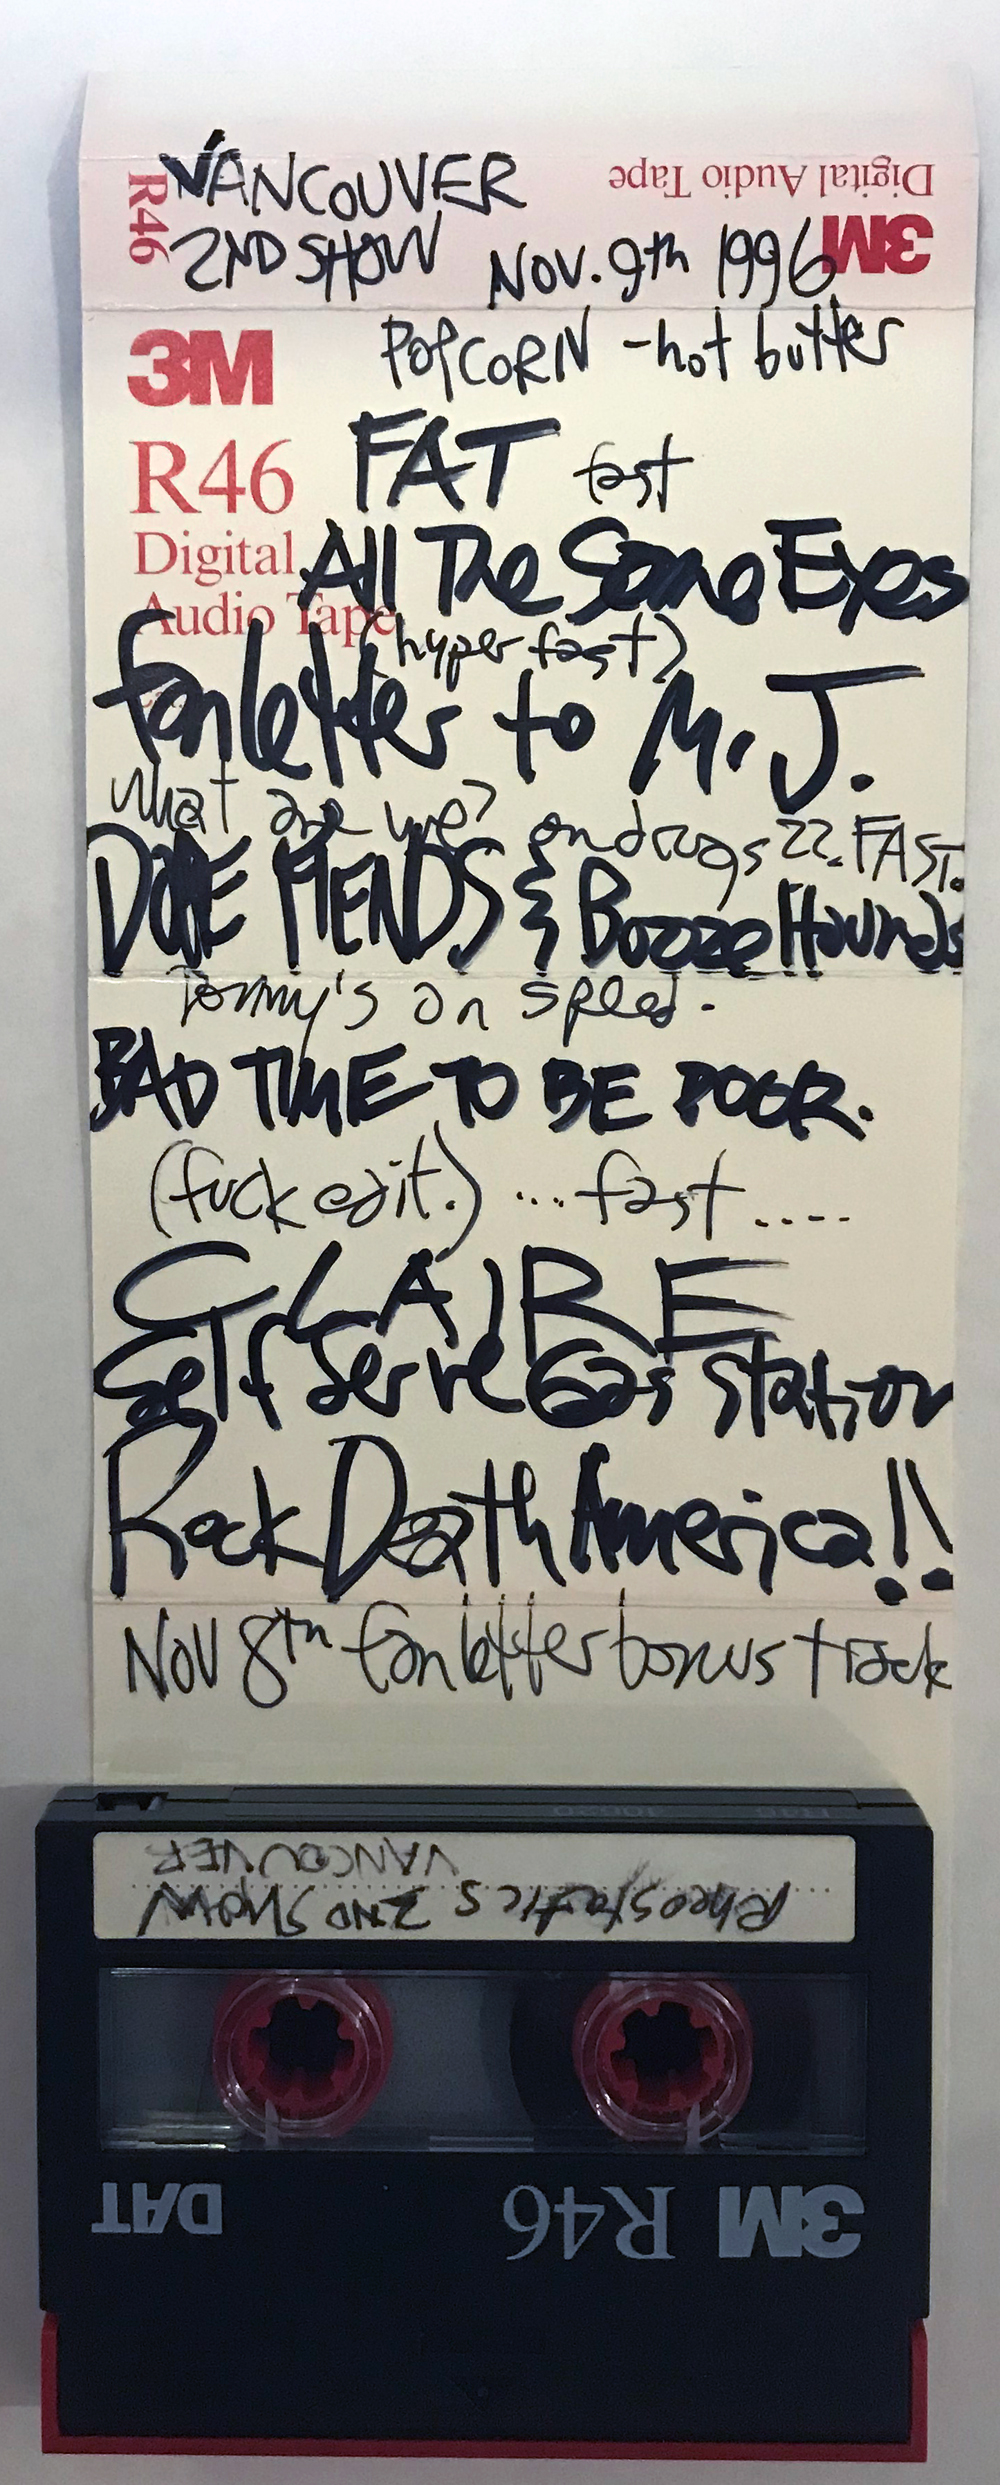 Digital Audio Tape
3M
R46
VANCOUVER
2ND SHOW Nov. 9th 1996
3M
POPCORN - hot butter
R46
FAT fast
Digital
Audio Tape
All The Same Eyes
(hyper fast)
fan letter to M.J.
what are we? on drugs ??. FAST.
DOPE FIENDS & Booze Hounds
Tommy's on speed.
BAD TIME TO BE POOR.
(fuck edit.) ... fast ....
CLAIRE
Self Serve Gas Station
Rock Death America!!
Nov 8th fan letter bonus track
VANCOUVER
Rheostatics 2ND SHOW
DAT
3M R46